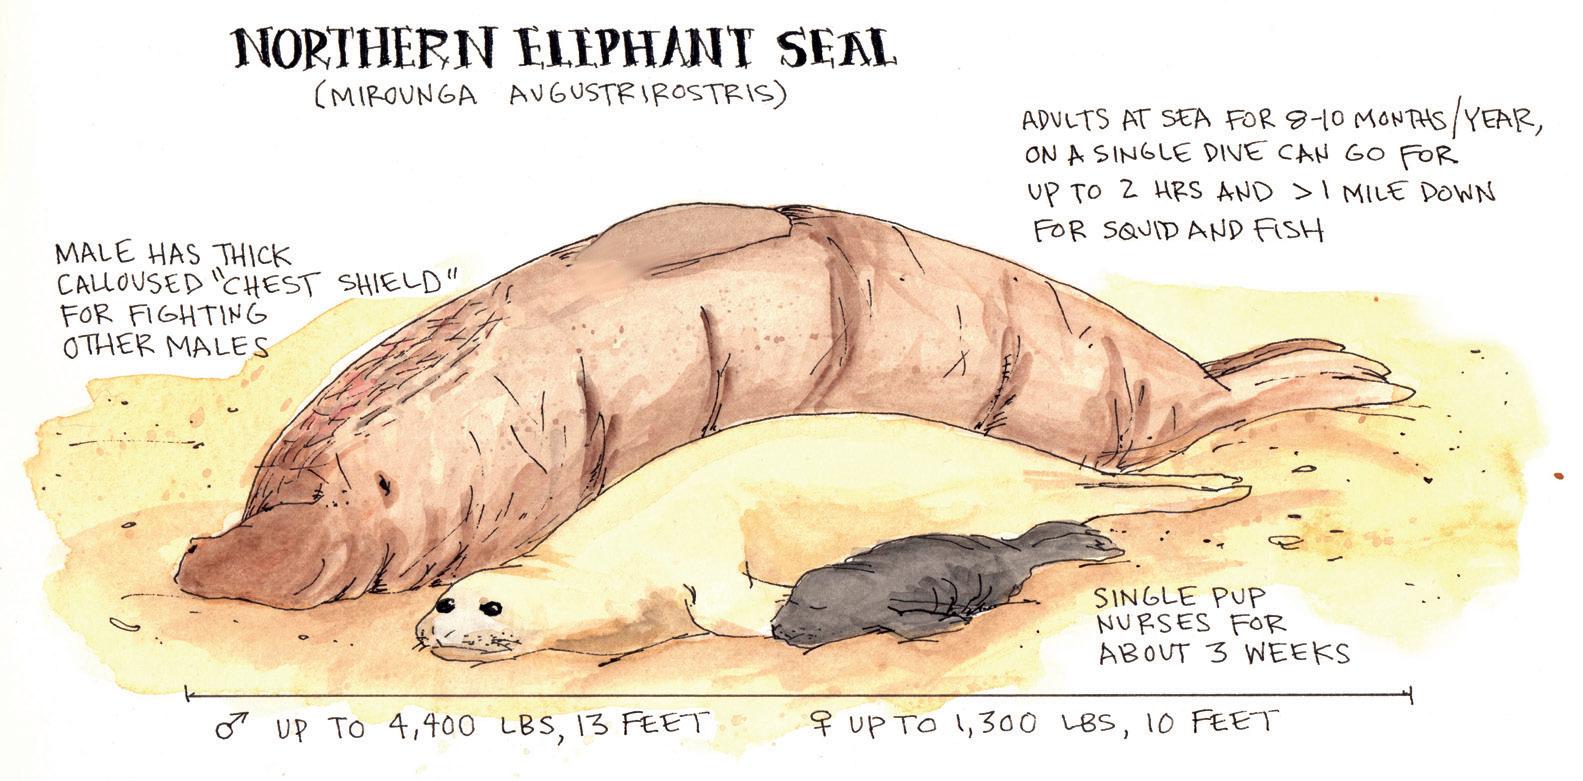 NORTHERN ELEPHANT SEAL
(MIROUNGA AUGUSTRIROSTRIS)
ADULTS AT SEA FOR 8-10 MONTHS/YEAR,
ON A SINGLE DIVE CAN GO FOR
UP TO 2 HRS AND >1 MILE DOWN
FOR SQUID AND FISH
MALE HAS THICK
CALLOUSED "CHEST SHIELD"
FOR FIGHTING
OTHER MALES
SINGLE PUP
NURSES FOR
ABOUT 3 WEEKS
♂ UP TO 4,400 LBS, 13 FEET ♀ UP TO 1,300 LBS, 10 FEET